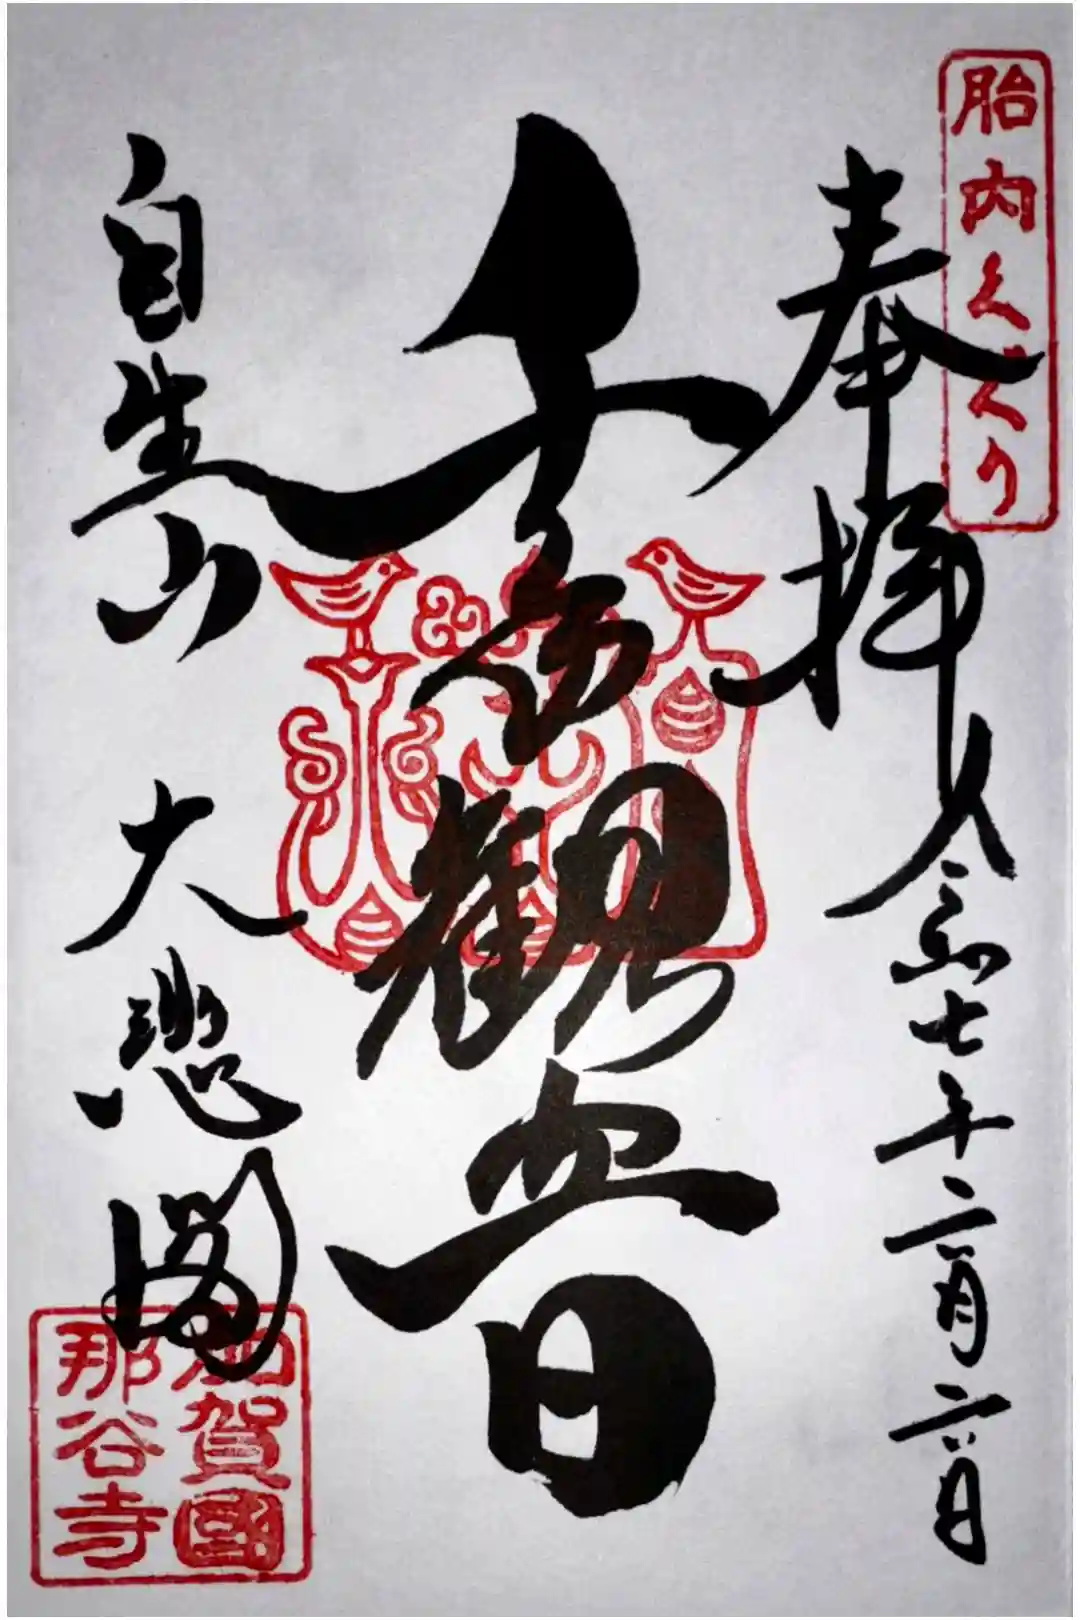 胎内くぐり
奉拝 令和七年六月六日
千手観音
自生山 大悲閣
加賀國
那谷寺